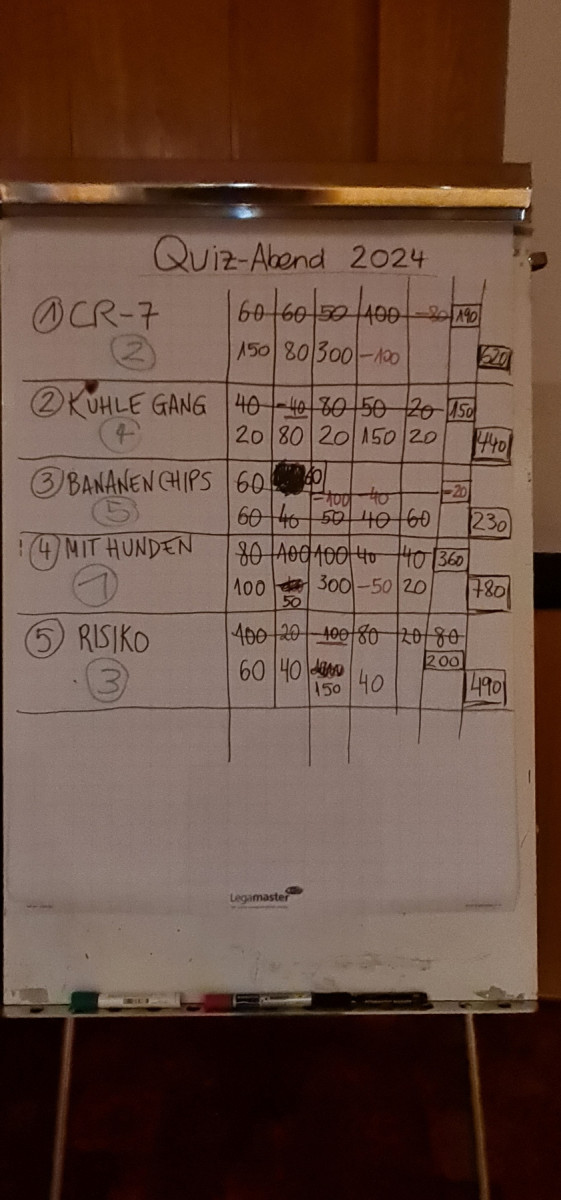 Quiz-Abend 2024
① CR-7 60 60 50 100 -80 190
② 150 80 300 -100 620
② KÜHLE GANG 40 -40 80 50 20 150
④ 20 80 20 150 20 440
③ BANANENCHIPS 60 60 -100 -40 -20
⑤ 60 40 50 40 60 230
! ④ MIT HUNDEN 80 100 100 40 40 360
① 100 50 300 -50 20 780
⑤ RISIKO 100 20 -100 80 20 80
200
③ 60 40 150 40 490
Legamaster